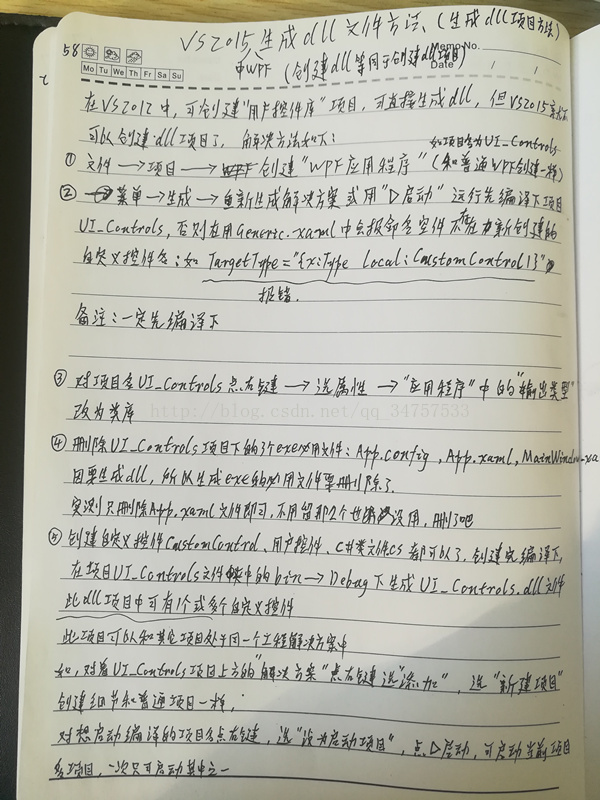 VS2015生成dll文件方法、(生成dll项目方法)
58
中WPF (创建dll等同于创建dll项目)
Memo No.
Mo Tu We Th Fr Sa Su
Date / /
在VS2012中,可创建"用户控件库"项目,可直接生成dll,但VS2015
可以创建dll项目了,解决方法如下:
如项目名为UI_Controls
① 文件→项目→创建"WPF应用程序"(和普通WPF创建一样)
② 菜单→生成→重新生成解决方案 或用"▷启动" 运行先编译下项目
UI_Controls,否则在用Generic.xaml中会报命名空件不存在新创建的
自定义控件名:如 TargetType="{x:Type local:CustomControl1}"
报错.
备注:一定先编译下
③ 对项目名UI_Controls点右键→选属性→"应用程序"中的"输出类型"
改为类库
http://blog.csdn.net/qq_34757533
④ 删除UI_Controls项目下的3个exe用文件:App.config,App.xaml,MainWindow.xa
因要生成dll,所以生成exe的用文件要删除了.
实测只删除App.xaml文件即可,不用留那2个也没用,删了吧
⑤ 创建自定义控件CustomControl、用户控件、C#类文件cs 都可以了,创建完编译下,
在项目UI_Controls文件中的bin→Debug下生成UI_Controls.dll文件
此dll项目中可有1个或多个自定义控件
此项目可以和其它项目处于同一个工程解决方案中
如,对着UI_Controls项目上方的"解决方案"点右键选"添加",选"新建项目"
创建细节和普通项目一样,
对想启动编译的项目名点右键,选"设为启动项目",点▷启动,可启动当前项目
多项目,一次只可启动其中之一